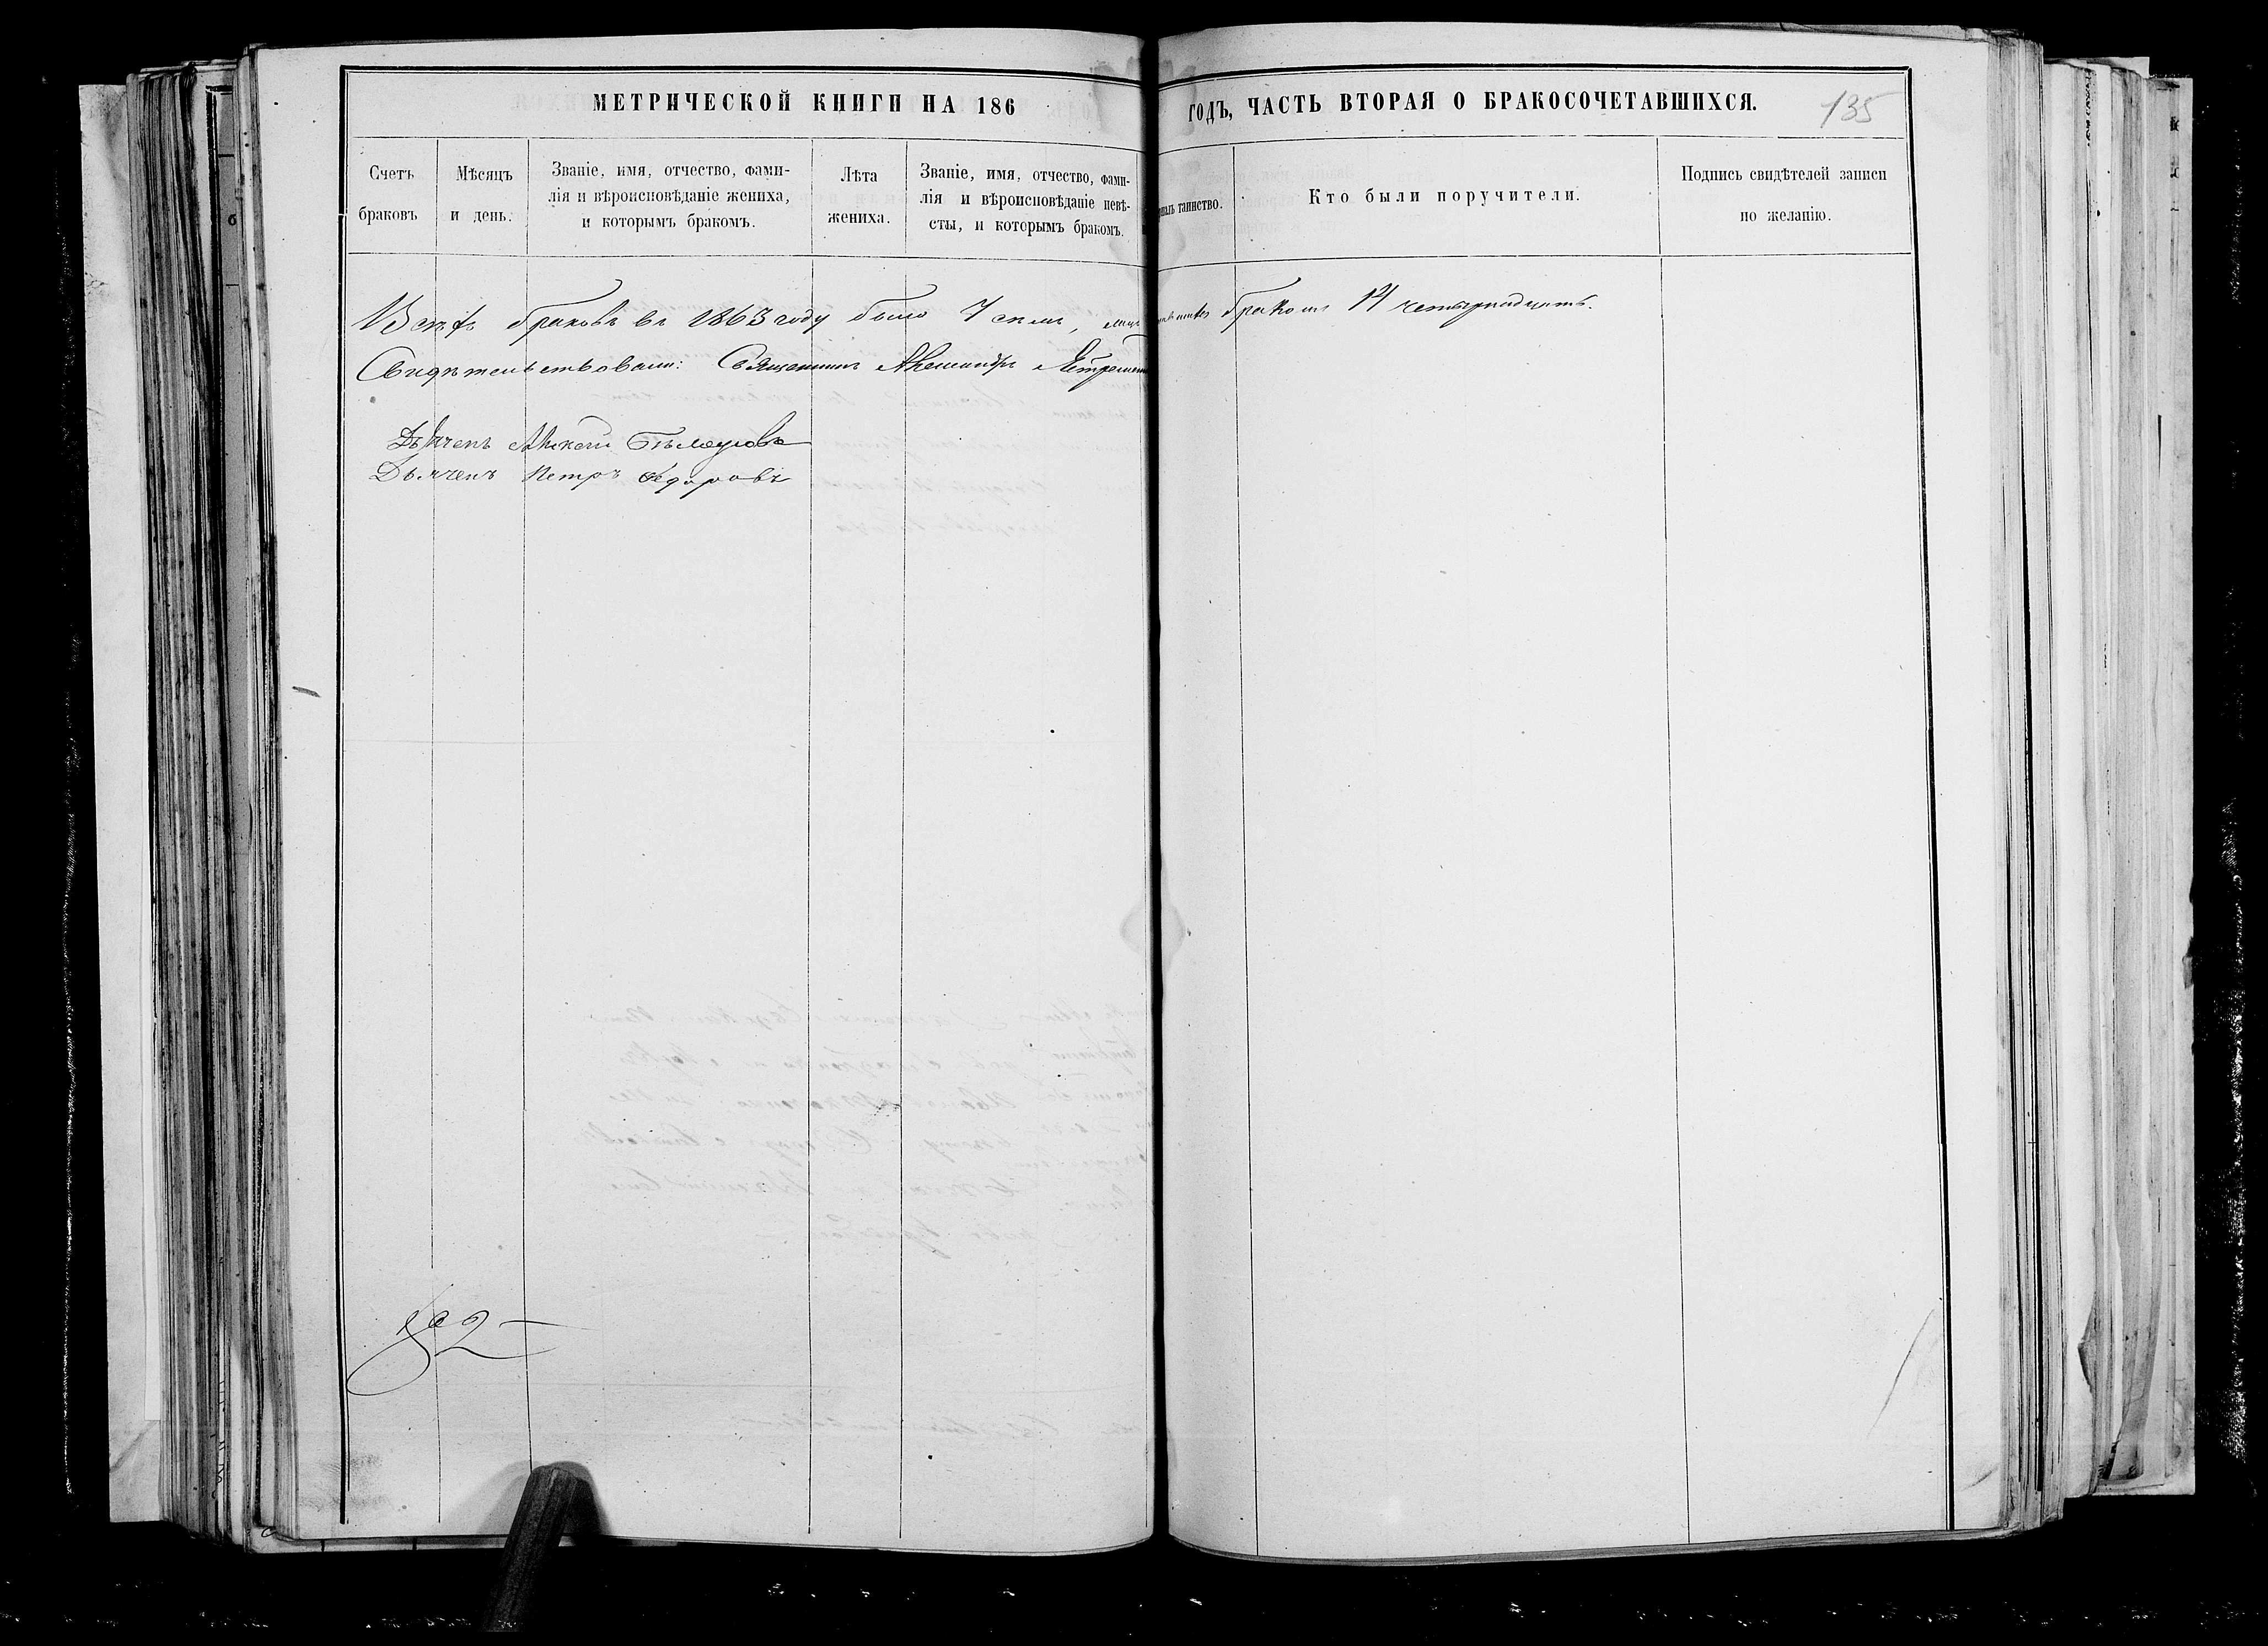 МЕТРИЧЕСКОЙ КНИГИ НА 186 ГОДЪ, ЧАСТЬ ВТОРАЯ О БРАКОСОЧЕТАВШИХСЯ.
135
Счетъ браковъ
Мѣсяцъ и день.
Званіе, имя, отчество, фами-
лія и вѣроисповѣданіе жениха,
и которымъ бракомъ.
Лѣта жениха.
Званіе, имя, отчество, фами-
лія и вѣроисповѣданіе невѣ-
сты, и которымъ бракомъ.
таинство.
Кто были поручители.
Подпись свидѣтелей записи
по желанію.
Всѣхъ браковъ въ 1863 году было 7 семь, бракомъ 14 четырнадцать.
Свидѣтельствовали: Священникъ Александръ
Дьячекъ Алексѣй
Дьячекъ Петръ Федоровъ